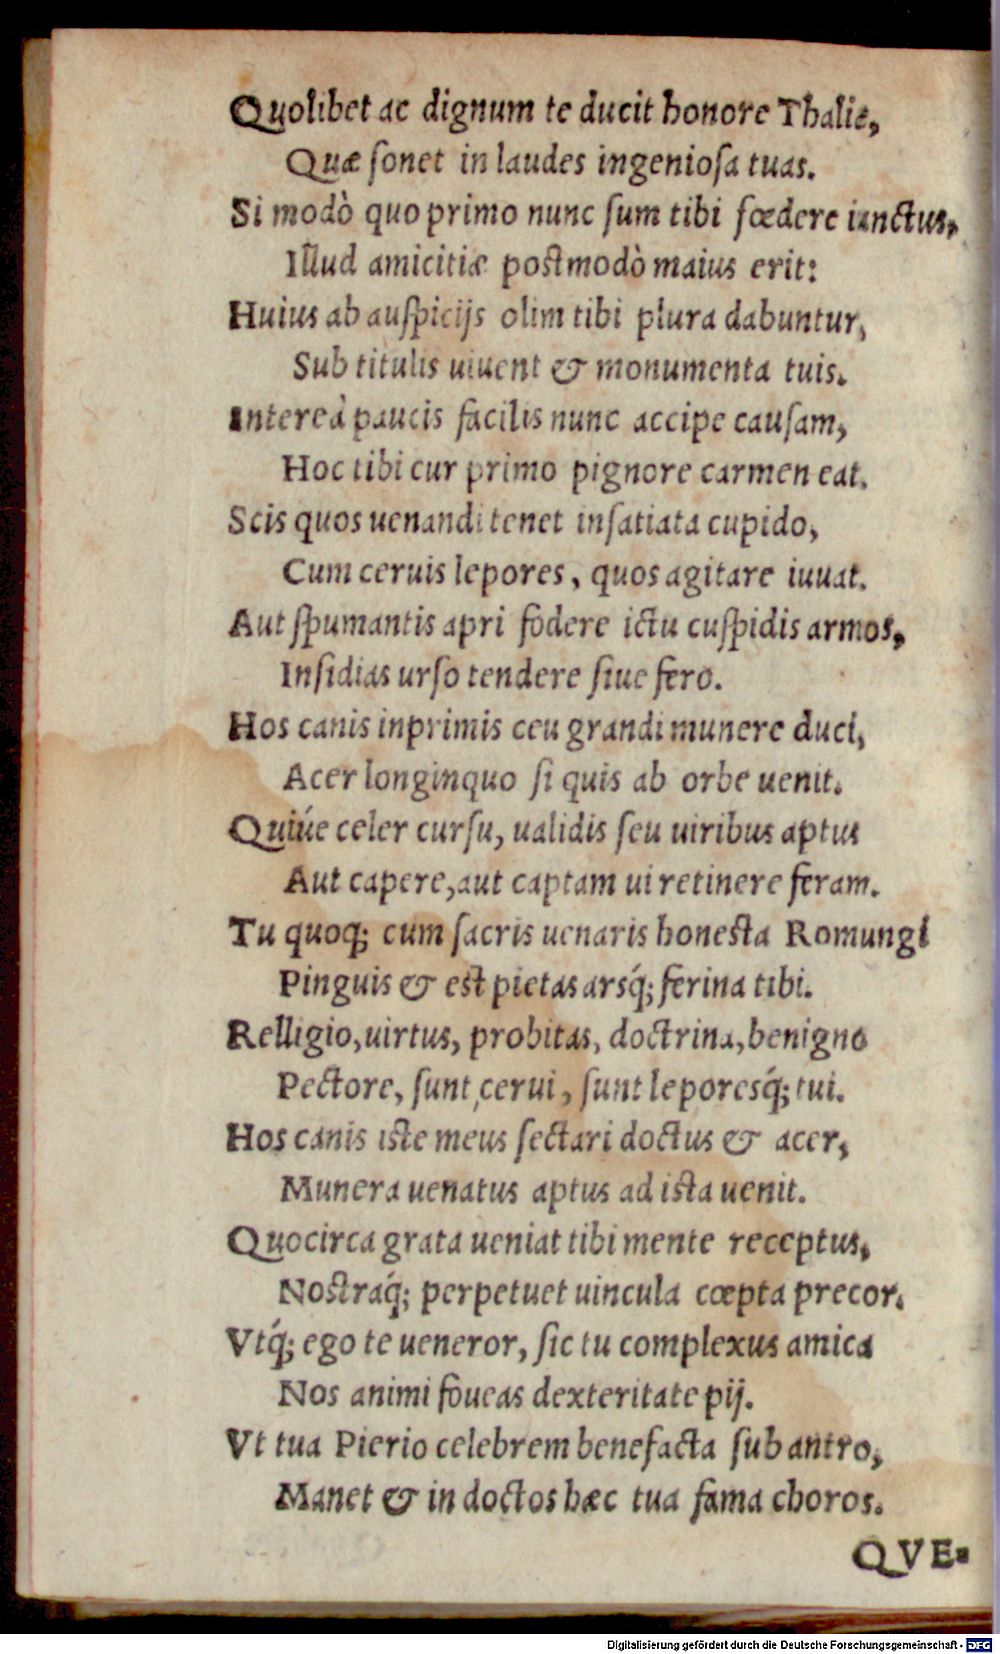 Quolibet ac dignum te ducit honore Thalię,
Quæ ſonet in laudes ingenioſa tuas.
Si modò quo primo nunc ſum tibi fœdere iunctus,
Illud amicitiæ postmodò maius erit:
Huius ab auſpicijs olim tibi plura dabuntur,
Sub titulis uiuent & monumenta tuis.
Intereà paucis facilis nunc accipe cauſam,
Hoc tibi cur primo pignore carmen eat.
Scis quos uenandi tenet inſatiata cupido,
Cum ceruis lepores, quos agitare iuuat.
Aut ſpumantis apri fodere ictu cuſpidis armos,
Inſidias urſo tendere ſiue fero.
Hos canis inprimis ceu grandi munere duci,
Acer longinquo ſi quis ab orbe uenit.
Quiúe celer curſu, ualidis ſeu uiribus aptus
Aut capere, aut captam ui retinere feram.
Tu quoq; cum ſacris uenaris honesta Romungi
Pinguis & est pietas arsq́; ferina tibi.
Relligio, uirtus, probitas, doctrina, benigno
Pectore, ſunt cerui, ſunt leporesq́; tui.
Hos canis iste meus ſectari doctus & acer,
Munera uenatus aptus ad ista uenit.
Quocirca grata ueniat tibi mente receptus,
Nostraq́; perpetuet uincula cœpta precor.
Vtq́; ego te ueneror, ſic tu complexus amica
Nos animi foueas dexteritate pij.
Vt tua Pierio celebrem benefacta ſub antro,
Manet & in doctos hæc tua fama choros.
QVE-
Digitalisierung gefördert durch die Deutsche Forschungsgemeinschaft - DFG